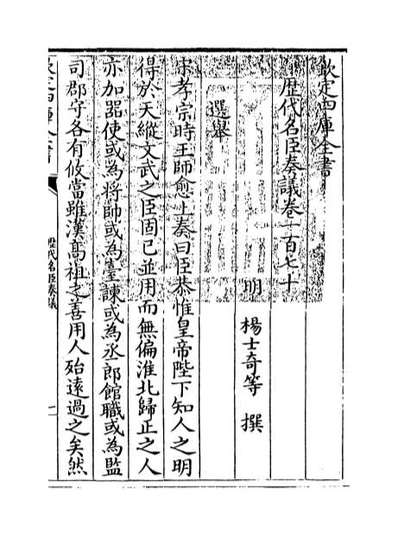 欽定四庫全書
歷代名臣奏議卷一百七十
明 楊士奇等 撰
選舉
宋孝宗時王師愈上奏曰臣恭惟皇帝陛下知人之明
得於天縱文武之臣固已並用而無偏淮北歸正之人
亦加器使或為將帥或為臺諫或為丞郎館職或為監
司郡守各有攸當雖漢高祖之善用人殆遠過之矣然
歷代名臣奏議